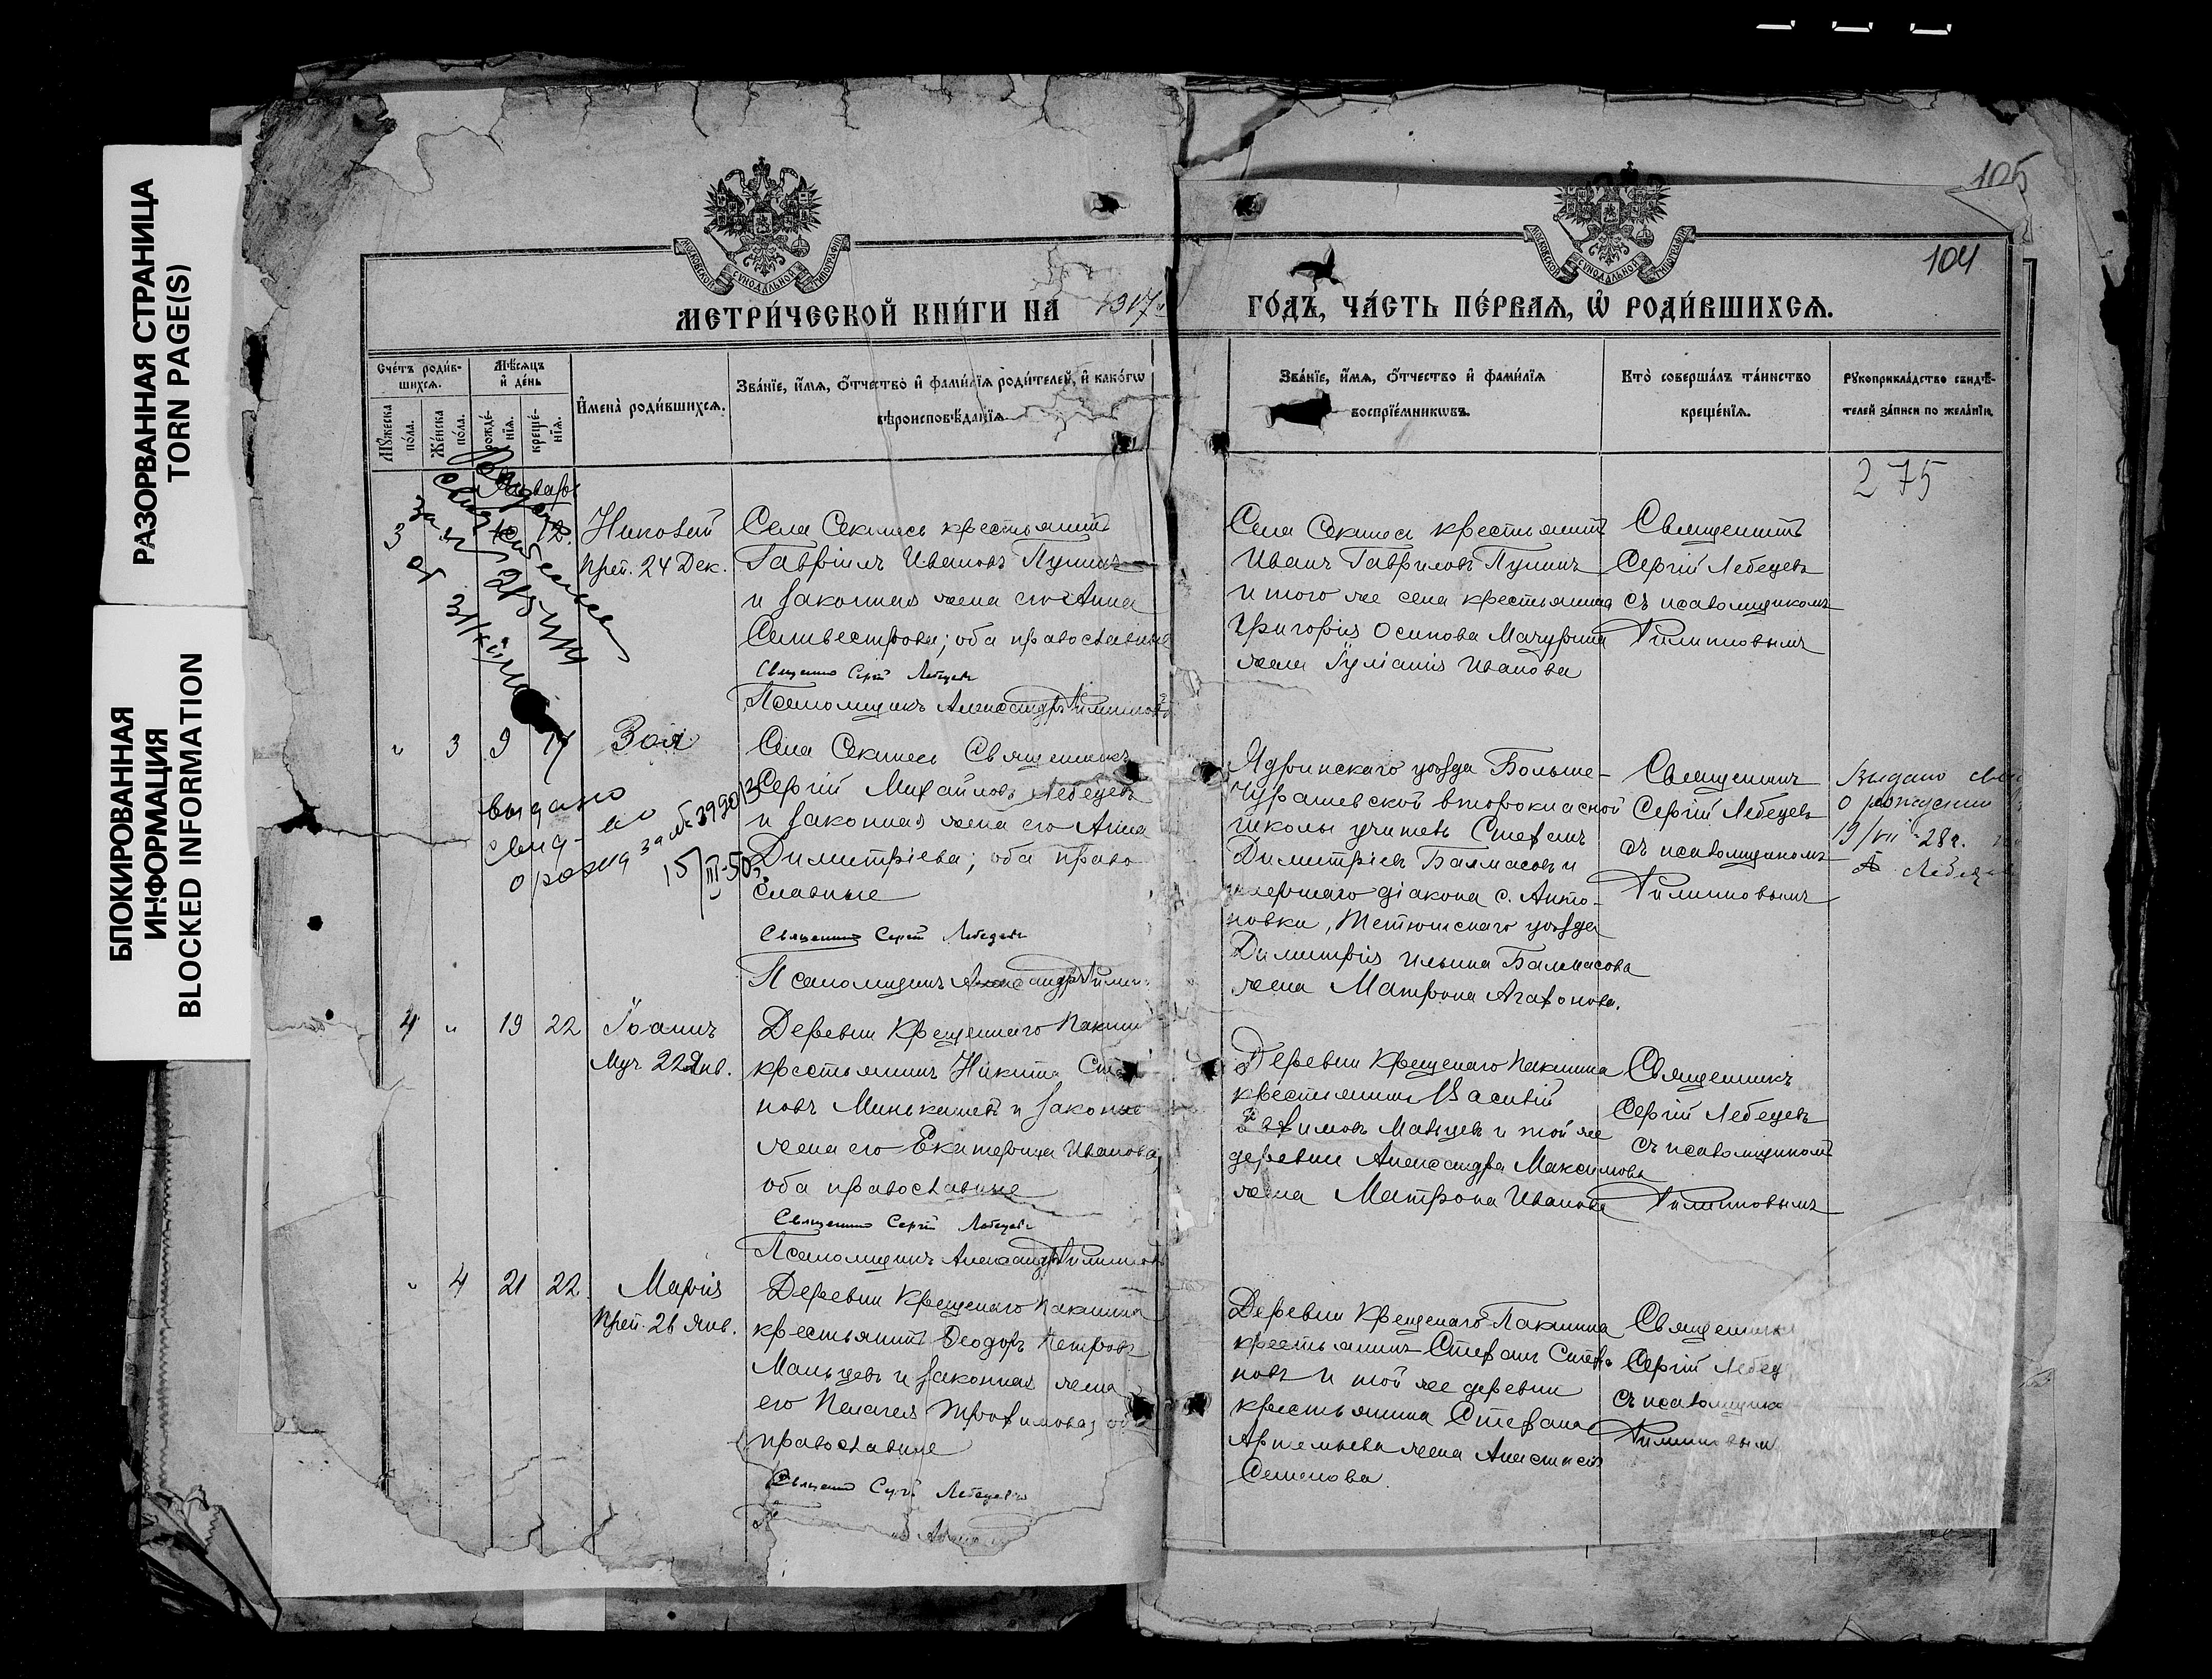 РАЗОРВАННАЯ СТРАНИЦА
TORN PAGE(S)
БЛОКИРОВАННАЯ
ИНФОРМАЦИЯ
BLOCKED INFORMATION
105
104
МОСКОВСКОЙ СѴНОДАЛЬНОЙ ТИПОГРАФІИ
МОСКОВСКОЙ СѴНОДАЛЬНОЙ ТИПОГРАФІИ
МЕТРИ́ЧЕСКОЙ КНИ́ГИ НА 1917 ГО́ДЪ, ЧА́СТЬ ПЕ́РВАЯ, Ѡ҆ РОДИ́ВШИХСЯ.
Сче́тъ роди́в-
шихся.
Мѣ́сяцъ
и҆ де́нь
Мꙋ́жеска
по́ла.
Же́нска
по́ла.
рожде́-
нїя.
креще́-
нїя.
И҆мена̀ роди́вшихся.
Зва́нїе, и҆́мя, ѻ҆́тчество и҆ фами́лїя роди́телей, и҆ како́гѡ
вѣроисповѣ́данїя
Зва́нїе, и҆́мя, ѻ҆́тчество и҆ фами́лїя
воспрїе́мникѡвъ.
Кто̀ соверша́лъ та́инство
креще́нїя.
Рꙋкоприкла́дство свидѣ́-
телей за́писи по жела́нїю.
275
Января
3
12.
Николай
Преп. 24 Дек.
Села Секинесь крестьянинъ
Гавріилъ Ивановъ Пунинъ
и законная жена его Анна
Сельвестрова; оба православные
Священникъ Сергій Лебедевъ
Псаломщикъ Александръ Филипповъ
Села Секинесь крестьянинъ
Иванъ Гавриловъ Пунинъ
и того же села крестьянина
Григорія Осипова Мачурина
жена Іуліанія Иванова
Священникъ
Сергій Лебедевъ
съ псаломщикомъ
Филипповымъ
" 3 9 17
Зоя
выдано
свид-во
о рожд за № 2990
15/III-50г.
Села Секинесь Священникъ
Сергій Михайловъ Лебедевъ
и законная жена его Анна
Димитріева; оба право
славные
Священникъ Сергій Лебедевъ
Псаломщикъ Александръ Филип
Ядринскаго уѣзда Больше-
Чурашевской второклассной
школы учитель Стефанъ
Димитріевъ Балмасовъ и
умершаго діакона с. Анто-
новки, Тетюшскаго уѣзда
Димитрія Ильина Балмасова
жена Матрона Агафонова.
Священникъ
Сергій Лебедевъ
съ псаломщикомъ
Филипповымъ
Выдано сви
о рождении
19/VII-28г.
Лебедев
4 " 19 22
Іоаннъ
Муч 22 Янв.
Деревни Крещенаго Пакшин
крестьянинъ Никита Сте
новъ Минькашевъ и законн
жена его Екатерина Иванова,
оба православные
Священникъ Сергій Лебедевъ
Псаломщикъ Александръ Филиппов
Деревни Крещенаго Пакшина
крестьянинъ Василій
Мальцевъ и той же
деревни Александра Максимова
жена Матрона Иванова
Священникъ
Сергій Лебедевъ
съ псаломщикомъ
Филипповымъ
" 4 21 22
Марія
Преп. 26 Янв.
Деревни Крещенаго Пакшина
крестьянинъ Ѳеодоръ Петровъ
Мальцевъ и законная жена
его Пелагея Трофимова, оба
православные
Священникъ Сергій Лебедевъ
Деревни Крещенаго Пакшина
крестьянинъ Стефанъ Степа
новъ и той же деревни
крестьянина Стефана
Артемьева жена Анастасія
Семенова
Священникъ
Сергій Лебед
съ псаломщико
Филипповым